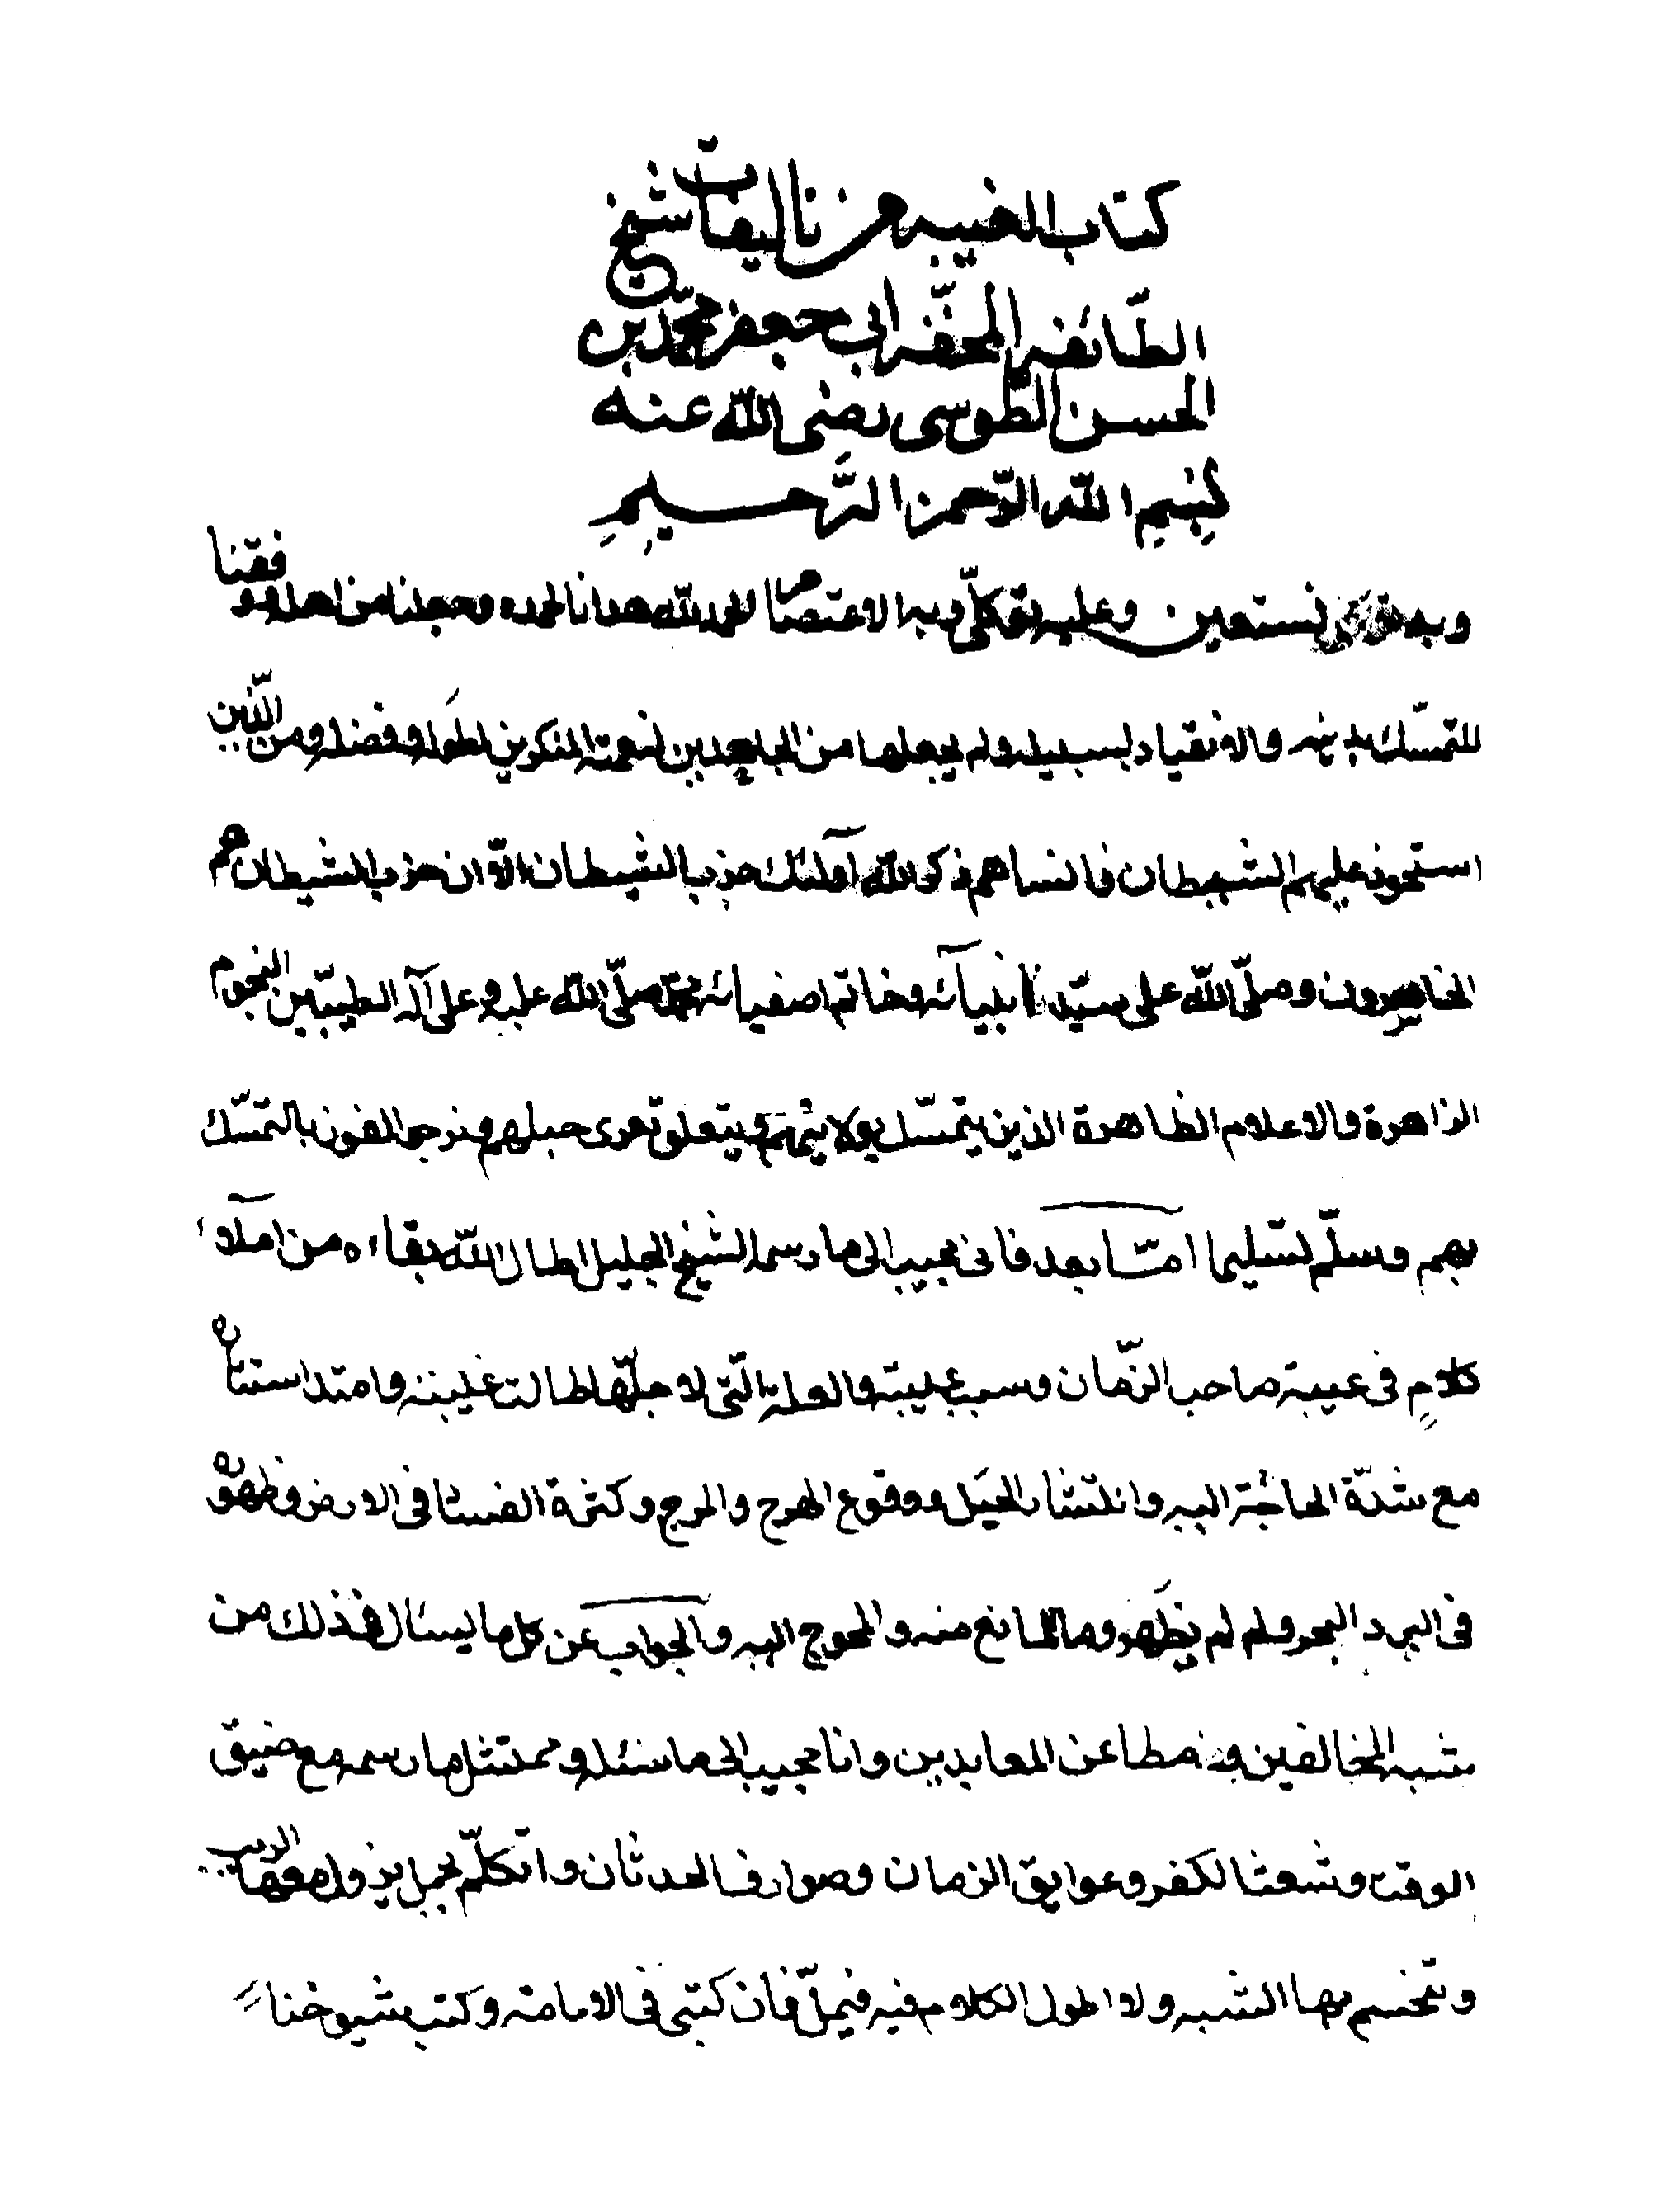 كتاب الغيبه من تاليفات شيخ
الطّائفه المحقّه ابى جعفر محمّد بن
الحسن الطّوسى رضى اللّه عنه
بِسْمِ اللّه الرّحمن الرَّحيمِ
وبه نستعين وعليه توكلّى وبه الاعتصام الحمد للّه هدانا لحمده وجعلنا من اهله ووفقنا
للتمسّك بدينه والانقياد لسبيله ولم يجعلنا من الجاحدين لنعمته المنكرين لطَوله وفضله ومن الّذين
استحوذ عليهم الشيطان فانساهم ذكر اللّه اولئك حزب الشيطان الا ان حزب الشيطان هم
الخاسرون وصلّى اللّه على سيّد انبيآئه وخاتم اصفيائه محمّد صلّى اللّه عليه وعلى آله الطيبّين النجوم
الزاهرة والاعلام الظاهرة الذين يتمسّك بولايتهم ويتعلق بعرى حبلهم ونرجو الفوز بالتمسّك
بهم وسلّم تسليما امّا بعد فانى مجيب الى ما رسمه الشيخ الجليل اطال اللّه بقاءه من املآء
كلامٍ فى غيبة صاحب الزّمان وسبب غيبته والعلة التّى لاجلّها طالت غيبته وامتد استتاره
مع شدّة الحاجّة اليه وانتشار الحيَل ووقوع الهرج والمرج وكثرة الفساد فى الارض وظهوره
فى البر والبحر ولم لم يظَهر وما المانع منه والمحوج اليه والجواب عن كل ما يسئال فى ذلك من
شبه المخالفين و مطاعن المعاندين وانا مجيب الى ما سئله وممتثل ما رسمه مع ضيق
الوقت وشعث الفكر وعوايق الزمان وصوارف الحدثان واتكلّم بجمل يزول معها الريب
وتنحسم بها الشبه ولا اطول الكلام فيه فيملّ فان كتبى فى الامامة وكتب شيوخنا